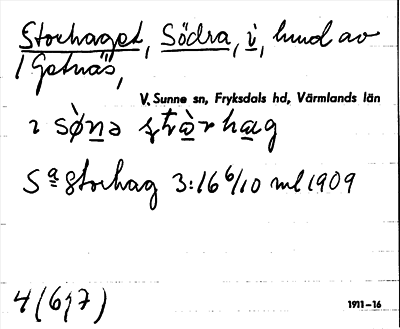 Storhaget, Södra, i, hmd av
1 Gotnäs,
V. Sunne sn, Fryksdals hd, Värmlands län
ı sø̀na stàrhag
Sa Storhag 3:16 6/10 ml 1909
4(6,7)
1911-16